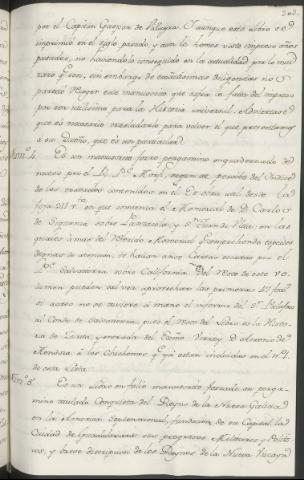 por el Capitan Gaspar de Villagra. Y aunque este Libro se
imprimió en el siglo pasado, y aun lo hemos visto impreso años
pasados, no haviendolo conseguido en la actualidad por lo mui
raro que es, sin embargo de exactissimas diligencias no
pareció ... este manuscrito que supla la falta del impreso
por ser utilissimo para la Historia universal. Adviertase
que es necesario trasladarlo para volver el que presentamos
á su Dueño, que es un particular.
Num. 4. Es un manuscrito forro pergamino enquadernado de
nuevo por el P. Fr. ... Morfi, segun se percibe del Indice
de los tratados contenidos en él. Es obra util desde la
foxa 211 en que comienza el Memorial de D. Carlos
de Siguenza sobre Panzacola, y S.n Juan de Ulua; en las
quales á mas del referido Memorial comprehende especies
dignas de atencion, se hallan años Cartas escritas por el
P.e Salvatierra sobre California. Del resto de este vo-
lumen pueden tal vez aprovechar las primeras 47 foxas
si acaso no se tuviere á mano el informe del S.r Palafox
al Conde de Salvatierra, pues el resto del Libro es la Histo-
ria de ... y entrada del ... Virrey D. Antonio de
Mendoza á los Chichimecos, q. ya estan incluidas en el N.º 1.
de esta Lista.
Num. 5. Es un Libro en folio manuscrito forrado en perga-
mino titulado Conquista del Reyno de la Nueva Galicia
en la America Septentrional, fundacion de su Capital la
Ciudad de Guadalaxara sus progresos Militares y Politi-
cos, y breve descripcion de los Reynos de la Nueva Vizcaya